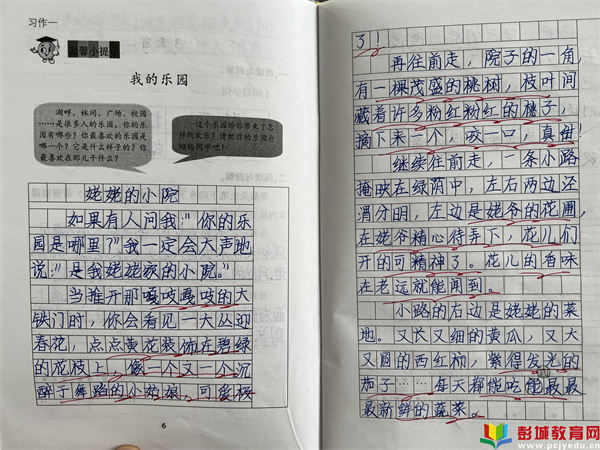 习作一
温馨小提示
我的乐园
湖畔、林间、广场、校园
……是很多人的乐园。你的乐
园有哪些?你最喜欢的乐园是
哪一个?它是什么样子的?你
最喜欢在那儿干什么?
这个乐园给你带来了怎
样的欢乐?请把你的乐园介
绍给同学吧!
姥姥的小院
如果有人问我:"你的乐
园是哪里?"我一定会大声地
说:"是我姥姥家的小院。"
当推开那嘎吱嘎吱的大
铁门时,你会看见一大丛迎
春花,点点黄花装饰在碧绿
的花枝上,像一个又一个沉
醉于舞蹈的小姑娘,可爱极
6
了!
再往前走,院子的一角,
有一棵茂盛的桃树,枝叶间
藏着许多粉红粉红的桃子,
摘下来一个,咬一口,真甜!
继续往前走,一条小路
掩映在绿荫中,左右两边泾
渭分明,左边是姥爷的花圃,
在姥爷精心侍弄下,花儿们
开的可精神了。花儿的香味
在老远就能闻到。
小路的右边是姥姥的菜
地。又长又细的黄瓜,又大
又圆的西红柿,紫得发光的
茄子……每天都能吃能最最
最新鲜的蔬菜。
彭城教育网
www.pcjyedu.cn